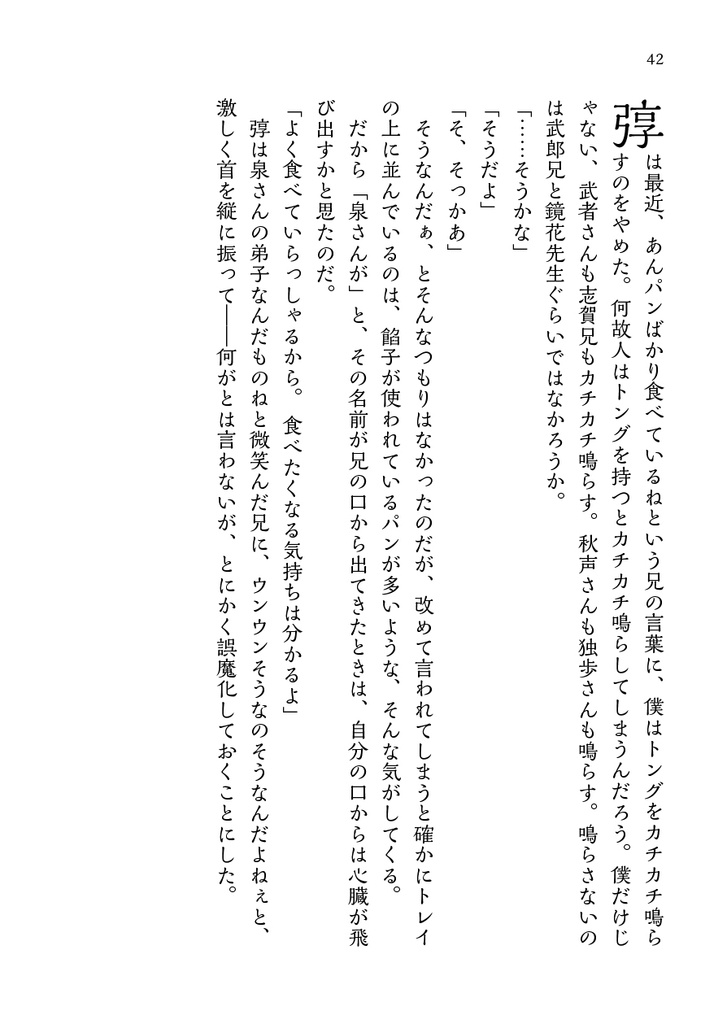 42
弴は最近、あんパンばかり食べているねという兄の言葉に、僕はトングをカチカチ鳴ら
すのをやめた。何故人はトングを持つとカチカチ鳴らしてしまうんだろう。僕だけじ
ゃない、武者さんも志賀兄もカチカチ鳴らす。秋声さんも独歩さんも鳴らす。鳴らさないの
は武郎兄と鏡花先生ぐらいではなかろうか。
「……そうかな」
「そうだよ」
「そ、そっかあ」
そうなんだぁ、とそんなつもりはなかったのだが、改めて言われてしまうと確かにトレイ
の上に並んでいるのは、餡子が使われているパンが多いような、そんな気がしてくる。
だから「泉さんが」と、その名前が兄の口から出てきたときは、自分の口からは心臓が飛
び出すかと思たのだ。
「よく食べていらっしゃるから。食べたくなる気持ちは分かるよ」
弴は泉さんの弟子なんだものねと微笑んだ兄に、ウンウンそうなのそうなんだよねぇと、
激しく首を縦に振って――何がとは言わないが、とにかく誤魔化しておくことにした。